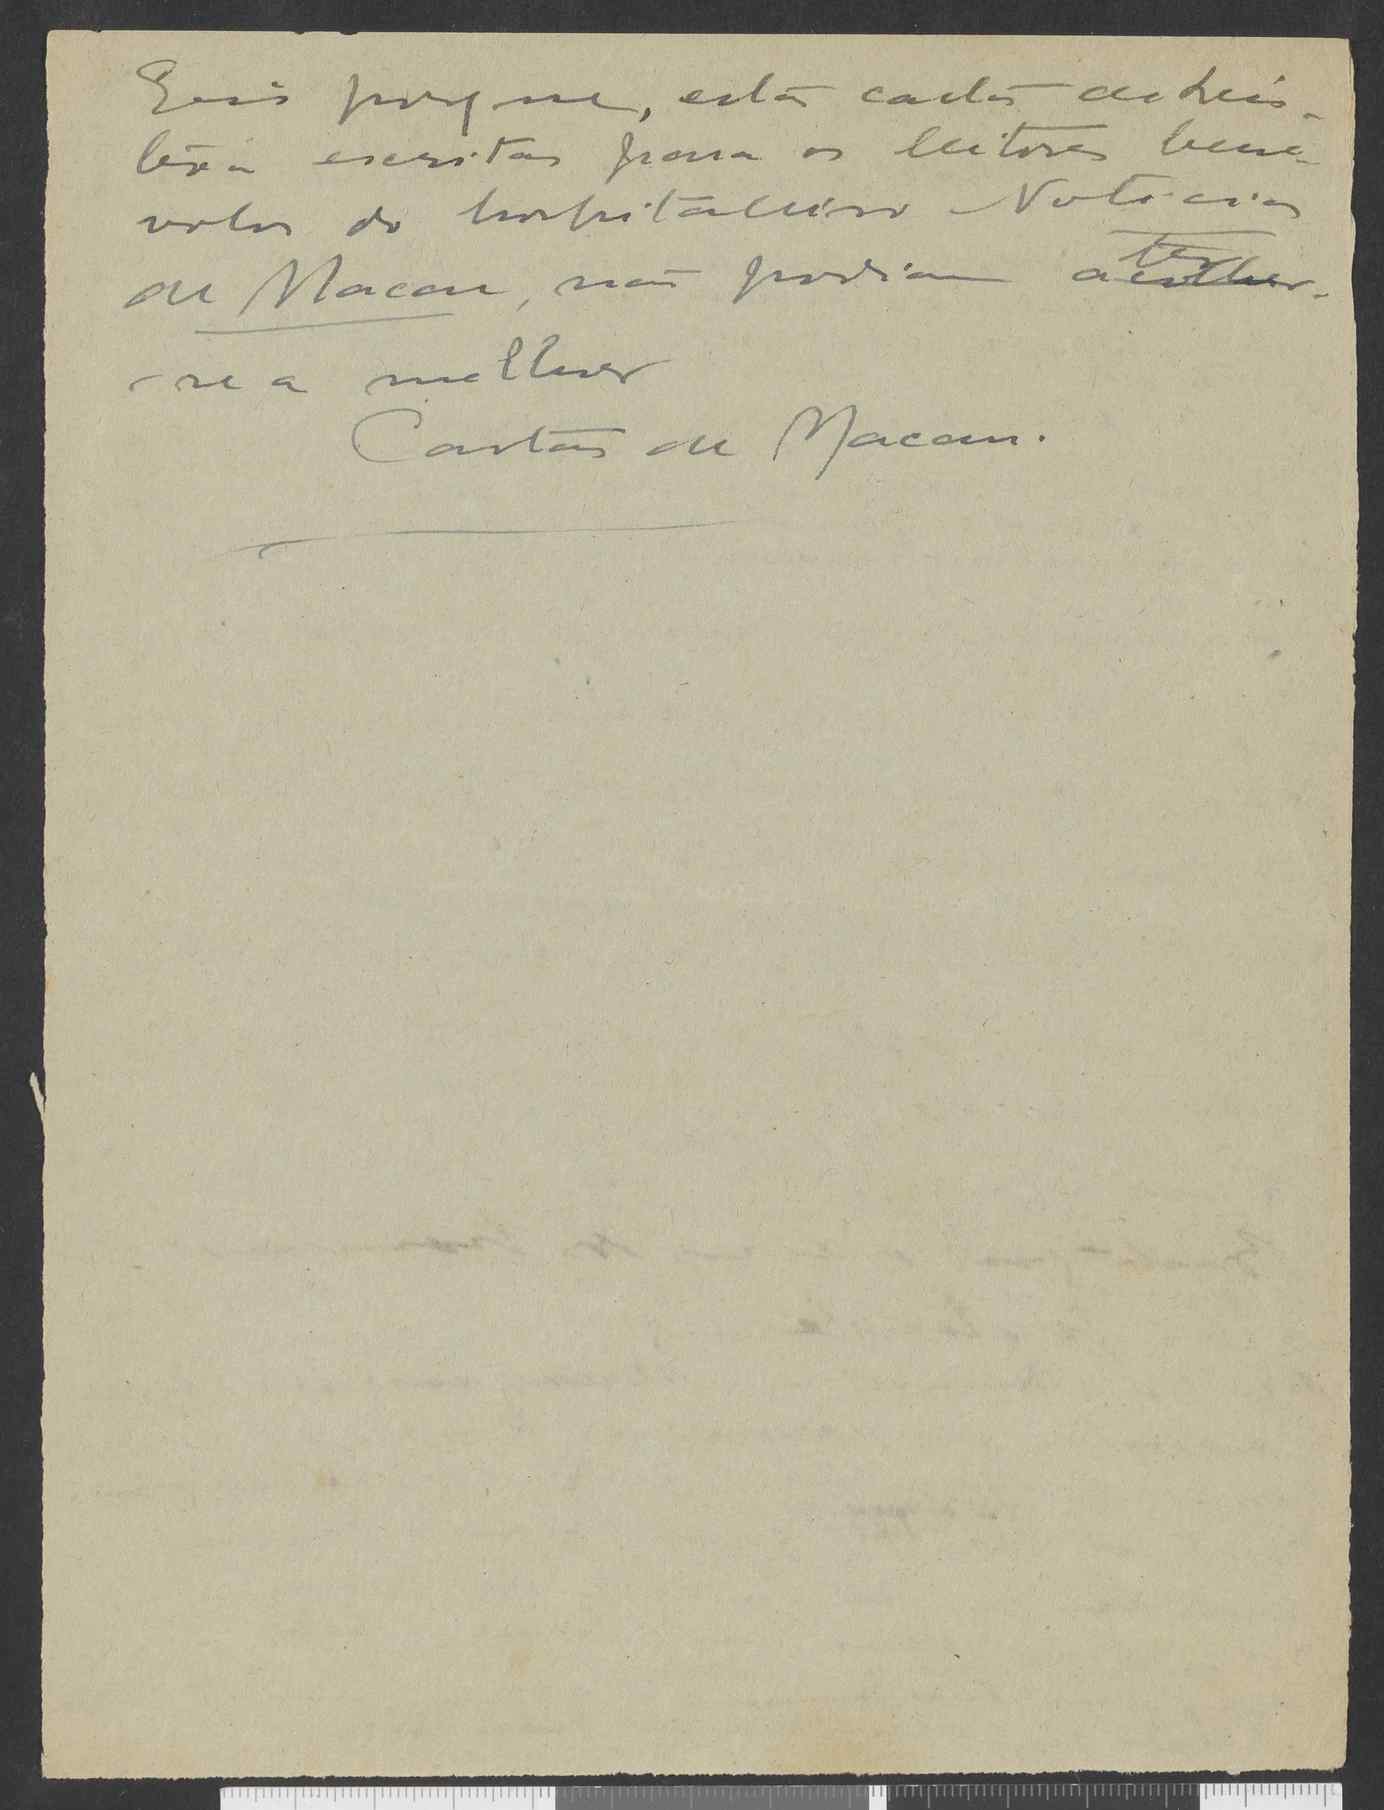 Eis porque, estas cartas de Lis-
bôa escritas para os leitores bené-
volos do hospitaleiro Noticias
de Macau, não podiam ter
-se a melhor
Cartas de Macau.